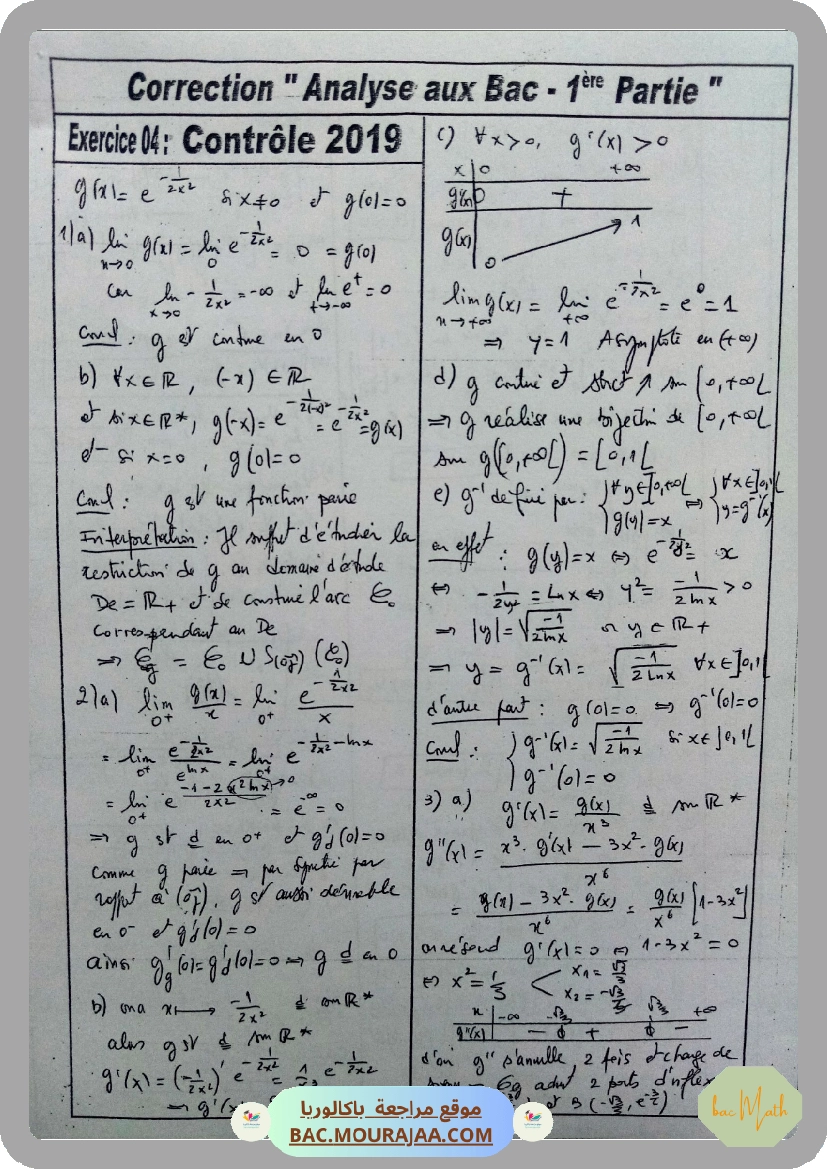 Correction " Analyse aux Bac - 1ère Partie "
Exercice 04 : Contrôle 2019
g(x) = e^{-1/2x²} si x≠0 et g(0)=0
1) a) lim_{x→0} g(x) = lim_0 e^{-1/2x²} = 0 = g(0)
car lim_{x→0} -1/2x² = -∞ et lim_{t→-∞} e^t = 0
Concl : g est continue en 0
b) ∀x∈ℝ, (-x)∈ℝ
et si x∈ℝ*, g(-x) = e^{-1/2(-x)²} = e^{-1/2x²} = g(x)
et si x=0, g(0)=0
Concl : g est une fonction paire
Interprétation : Il suffit d'étudier la
restriction de g au domaine d'étude
De = ℝ+ et de construire l'arc 𝒞₀
correspondant au De
⇒ 𝒞g = 𝒞₀ ∪ S(oj) (𝒞₀)
2) a) lim_{0+} g(x)/x = lim_{0+} e^{-1/2x²}/x
= lim_{0+} e^{-1/2x²}/e^{lnx} = lim_{0+} e^{-1/2x² - lnx}
= lim_{0+} e^{(-1-2(x²lnx))/2x²} →0 = e^{-∞} = 0
⇒ g est d en 0+ et g'd(0)=0
Comme g paire ⇒ par symétrie par
rapport à (oj), g est aussi dérivable
en 0- et g'g(0)=0
ainsi g'g(0)=g'd(0)=0 ⇒ g d en 0
b) on a x ⟼ -1/2x² d sur ℝ*
alors g est d sur ℝ*
g'(x) = (-1/2x²)' e^{-1/2x²} = e^{-1/2x²}
⇒ g'(x)
c) ∀x>0, g'(x) >0
x 0 +∞
g'(x) 0 +
g(x) 0 1
lim_{x→+∞} g(x) = lim_{+∞} e^{-1/2x²} = e⁰ = 1
⇒ y=1 Asymptote en (+∞)
d) g continue et strict ↗ sur [0,+∞[
⇒ g réalise une bijection de [0,+∞[
sur g([0,+∞[) = [0,1[
e) g⁻¹ définie par : { ∀y∈]0,+∞[ g(y)=x ⇔ { ∀x∈]0,1[ y=g⁻¹(x)
en effet : g(y)=x ⇔ e^{-1/2y²} = x
⇔ -1/2y² = Ln x ⇔ y² = -1/2lnx > 0
⇒ |y| = √(-1/2lnx) or y∈ℝ+
⇒ y = g⁻¹(x) = √(-1/2Lnx) ∀x∈]0,1[
d'autre part : g(0)=0 ⇔ g⁻¹(0)=0
Concl : { g⁻¹(x) = √(-1/2lnx) si x∈]0,1[
g⁻¹(0) = 0
3) a) g'(x) = g(x)/x³ d sur ℝ*
g''(x) = (x³·g'(x) - 3x²·g(x))/x⁶
= (g(x) - 3x²·g(x))/x⁶ = g(x)/x⁶ [1-3x²]
on résoud g'(x)=0 ⇔ 1-3x²=0
⇔ x² = 1/3 < x₁ = √3/3 x₂ = -√3/3
x -∞ -√3/3 √3/3 +∞
g''(x) - 0 + 0 -
d'où g'' s'annulle 2 fois et change de
𝒞g admet 2 points d'inflex
et B(-√3/3, e^{-3/2})
موقع مراجعة باكالوريا
BAC.MOURAJAA.COM
bac Math